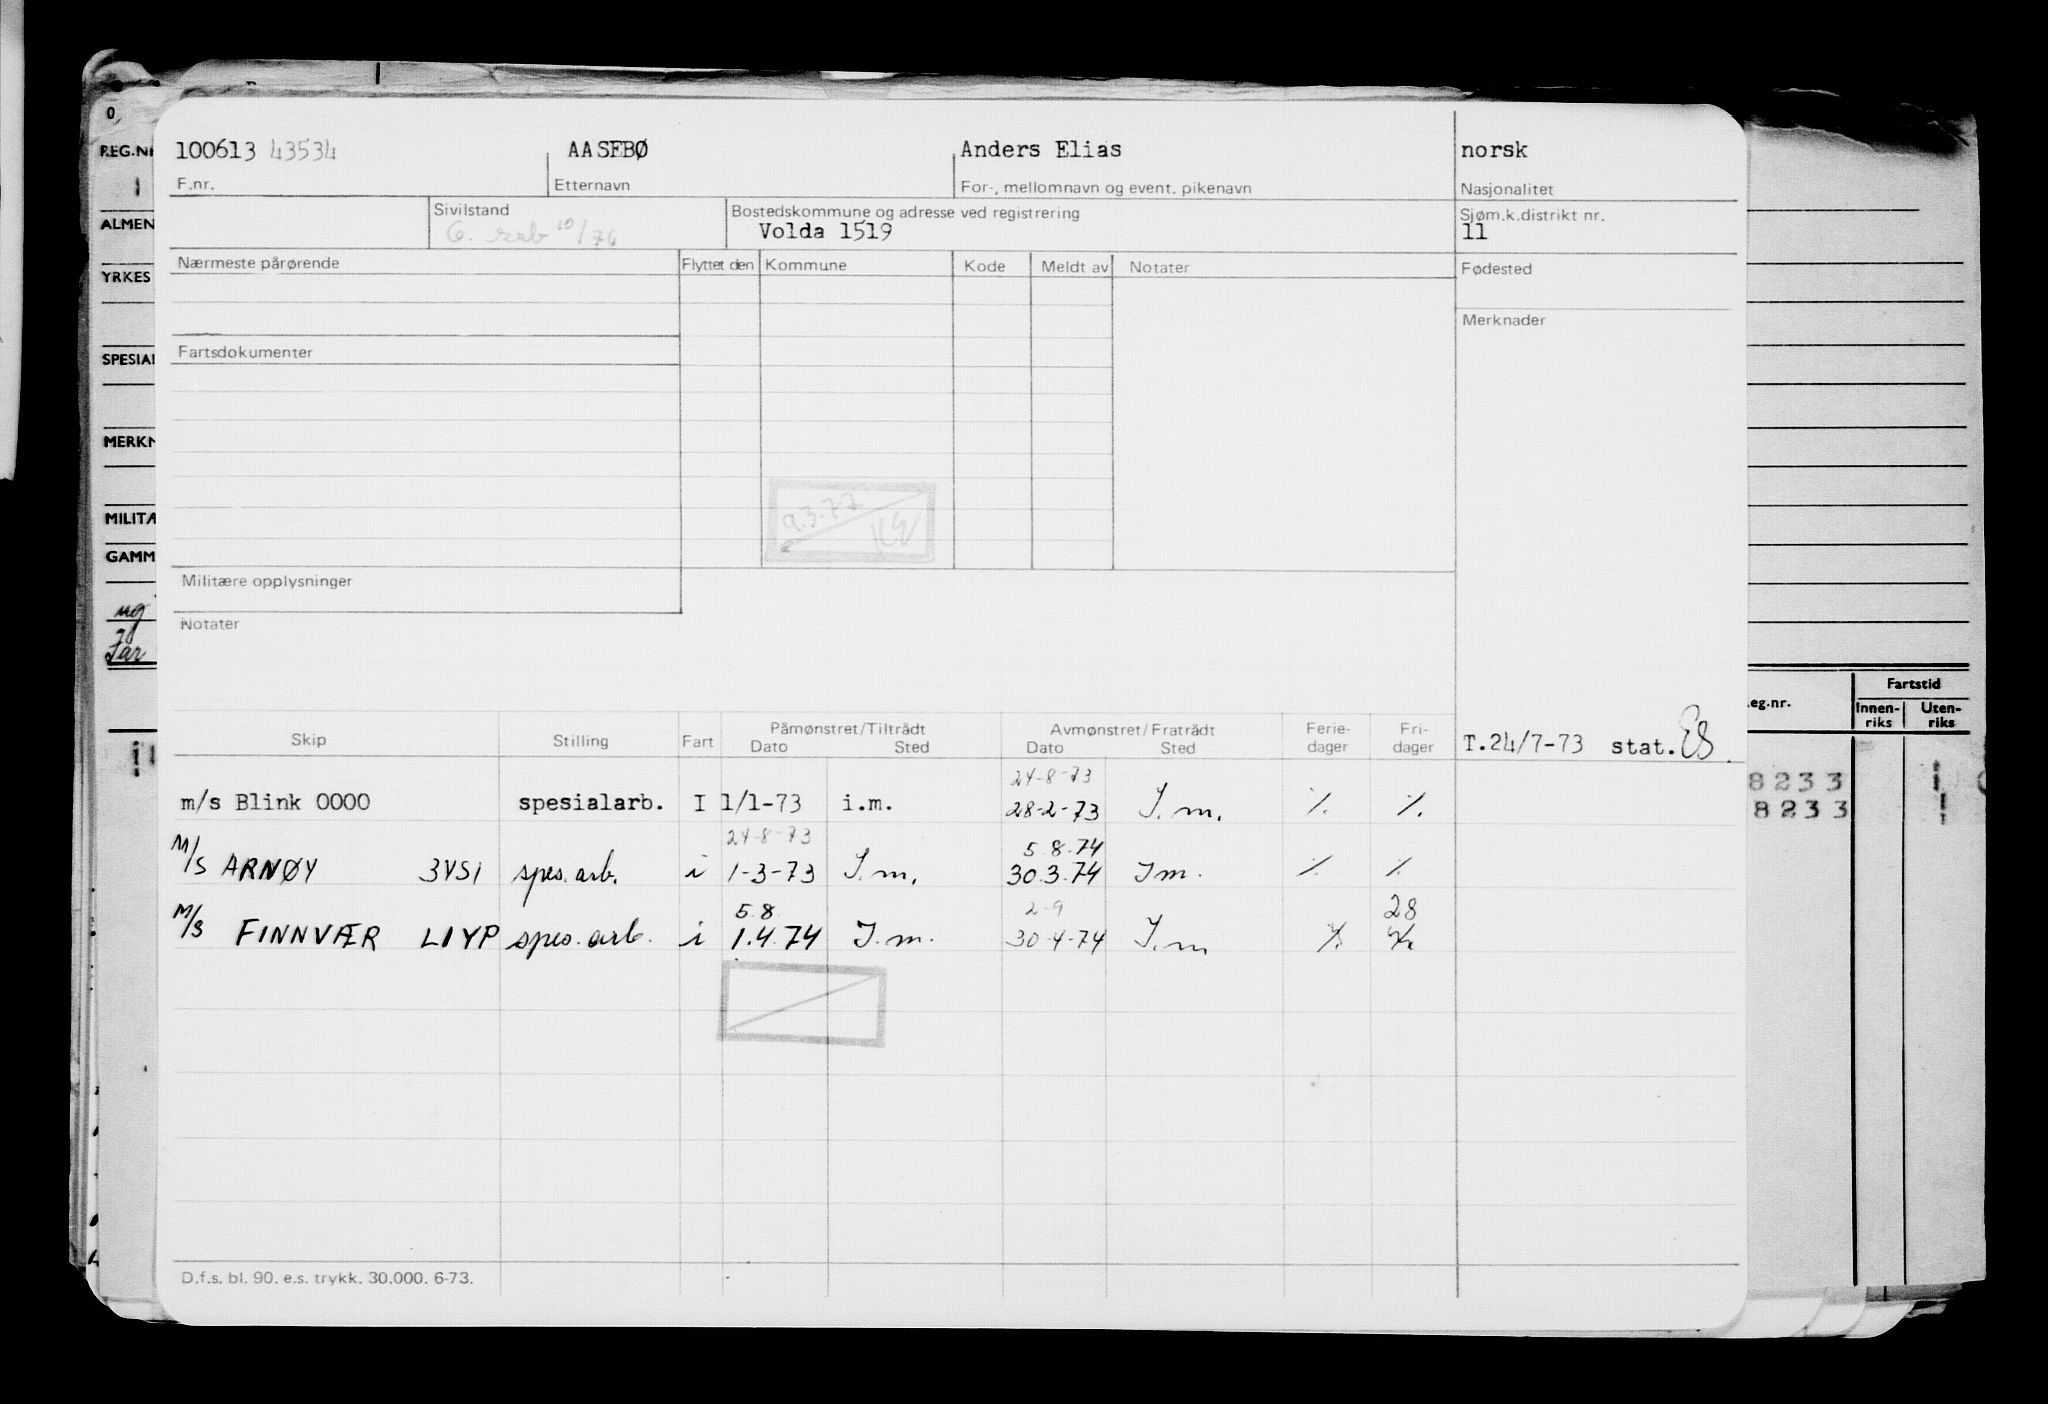 100613 43534 AASEBØ Anders Elias norsk
F.nr. Etternavn For-, mellomnavn og event. pikenavn Nasjonalitet
Sivilstand Bostedskommune og adresse ved registrering Sjøm.k.distrikt nr.
Volda 1519 11
Nærmeste pårørende Flyttet den Kommune Kode Meldt av Notater Fødested
Merknader
Fartsdokumenter
9.3.77
Militære opplysninger
Notater
Skip Stilling Fart Påmønstret/Tiltrådt Avmønstret/Fratrådt Ferie- Fri-
Dato Sted Dato Sted dager dager T.24/7-73 stat. ES
24-8-73
m/s Blink 0000 spesialarb. I 1/1-73 i.m. 28-2-73 I.m. % %
24-8-73 5.8.74
M/S ARNØY 3YSI spes.arb. i 1-3-73 I.m. 30.3.74 Im. % %
5.8 2-9 28
M/S FINNVÆR LIYP spes.arb. i 1.4.74 I.m. 30-4-74 I.m % %
D.f.s. bl. 90. e.s. trykk. 30.000. 6-73.
0
REG.NR
ALMEN
YRKES
SPESIAL
MERKN
MILITÆ
GAMM
ug
Jar
eg.nr. Fartstid
Innen-riks Uten-riks
8233
8233